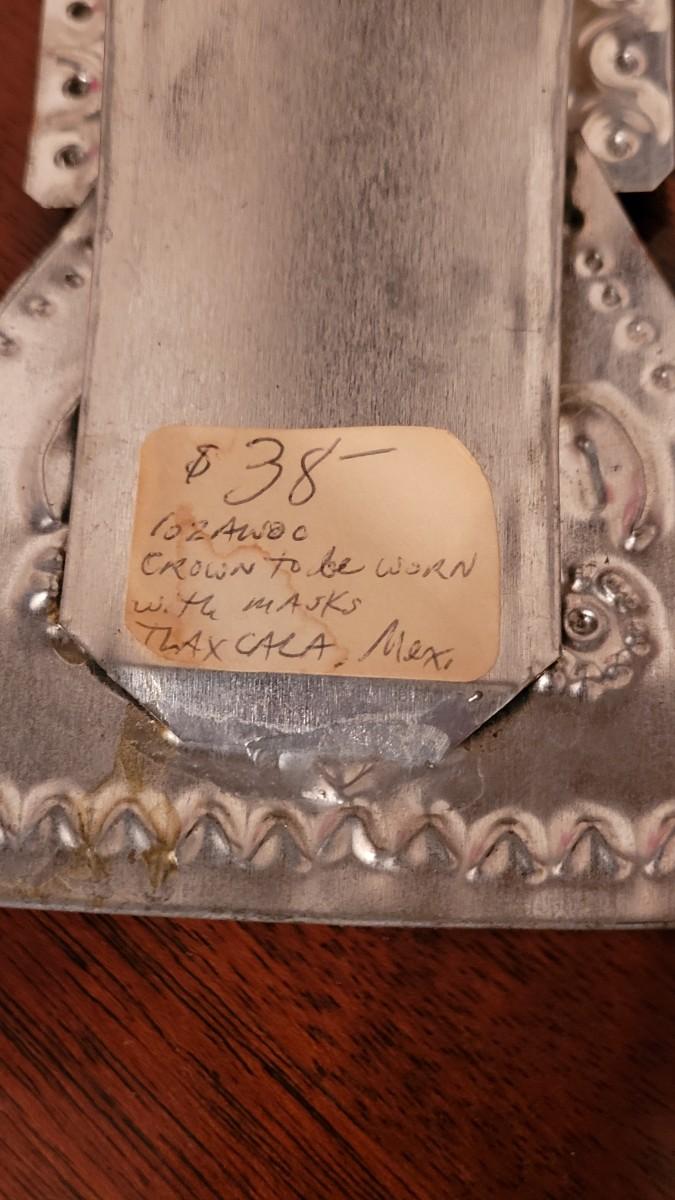 $ 38—
102AW00
CROWN to be WORN
with MASKS
TLAXCALA, Mex.